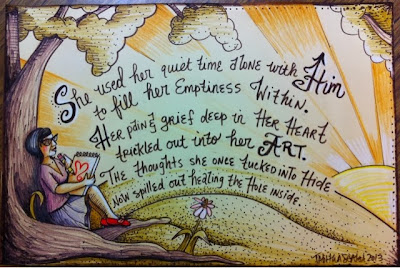 She used her quiet time alone with Him
to fill her Emptiness Within.
Her pain & grief deep in Her Heart
trickled out into her ART.
The thoughts she once tucked into Hide
Now spilled out healing the Hole inside.
2013